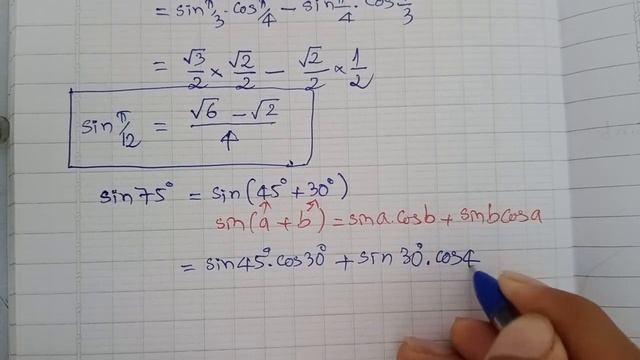 = sin π/3 . cos π/4 − sin π/4 . cos π/3
= √3/2 × √2/2 − √2/2 × 1/2
sin π/12 = (√6 − √2)/4
sin 75° = sin(45° + 30°)
sin(a + b) = sina.cosb + sinbcosa
= sin45°.cos30° + sin30°.cos4